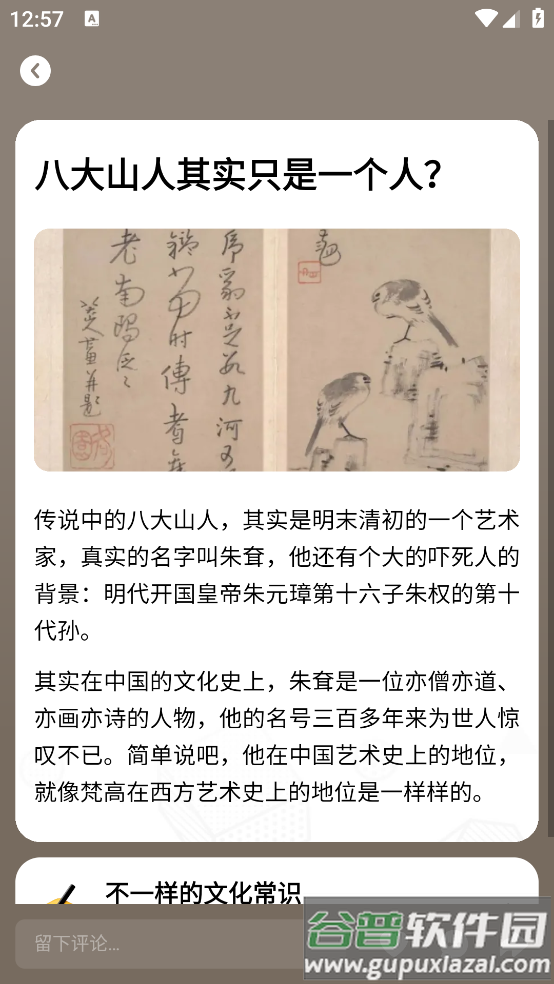 12:57
A
八大山人其实只是一个人？
传说中的八大山人，其实是明末清初的一个艺术
家，真实的名字叫朱耷，他还有个大的吓死人的
背景：明代开国皇帝朱元璋第十六子朱权的第十
代孙。
其实在中国的文化史上，朱耷是一位亦僧亦道、
亦画亦诗的人物，他的名号三百多年来为世人惊
叹不已。简单说吧，他在中国艺术史上的地位，
就像梵高在西方艺术史上的地位是一样样的。
不一样的文化常识
留下评论…
谷普软件园
www.gupuxlazal.com